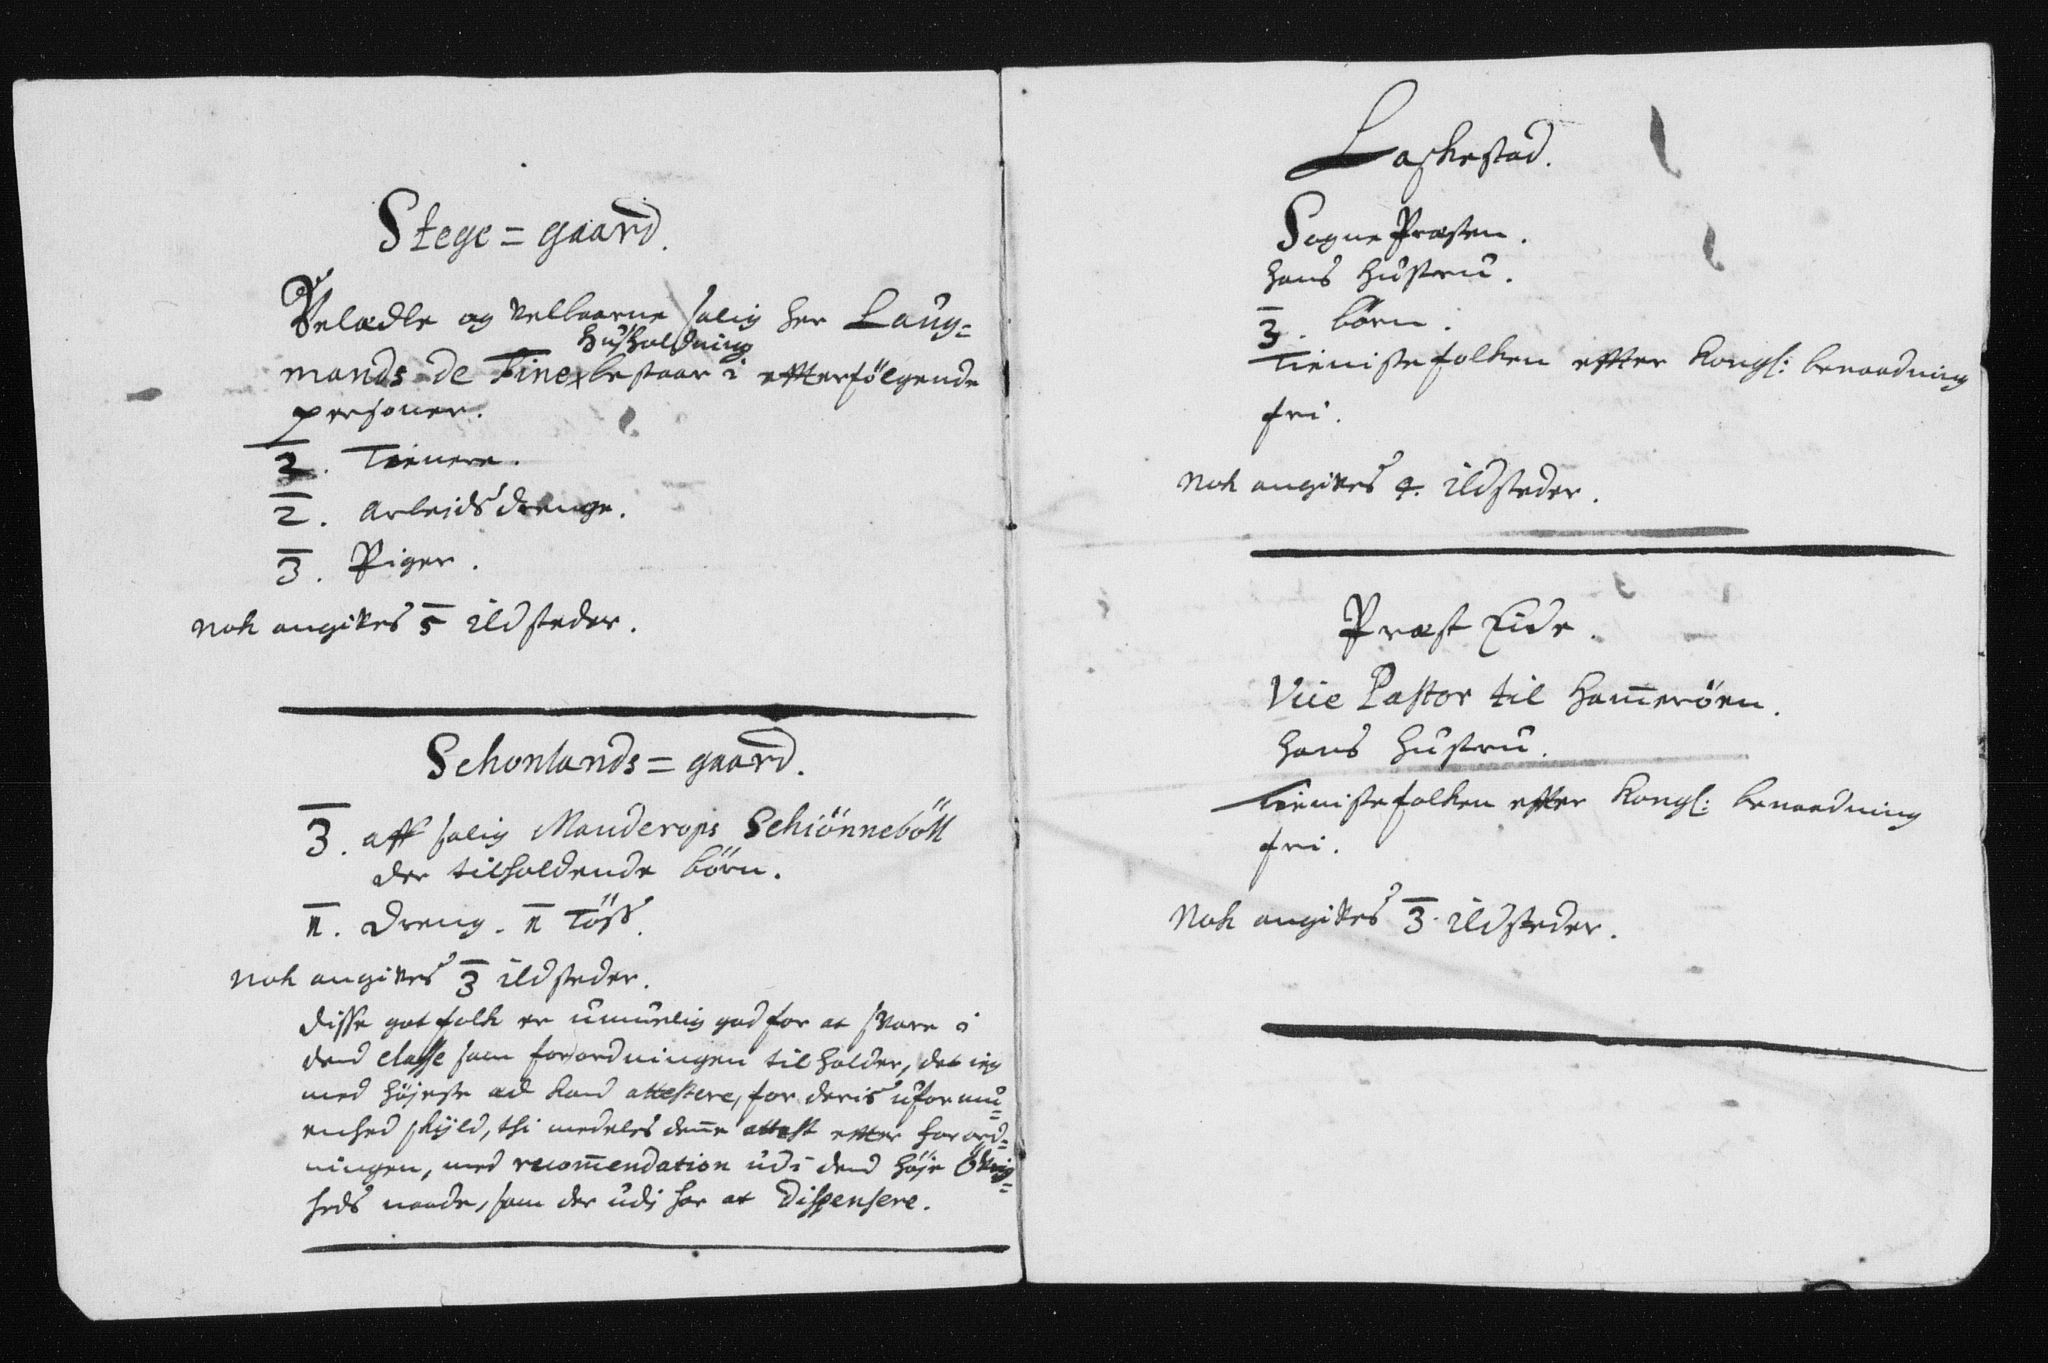 Stege = gaard.
Velædle og velbaarne salig her Laug=
Husholdning
mands de Fine bestaar i effterfölgende
personer.
3. Tienere.
2. Arbeids drenge.
3. Piger.
Nok angives 5 ildsteder.
Schonlands = gaard.
3. aff salig Manderops Schiönneböll
der tilholdende börn.
n. dreng. n Töss.
Nok angives 3 ildsteder.
disse got folk er umuelig god for at svare i
dend classe som forordningen tilholder, det ieg
med höjeste æd kand attestere, for deris uformu=
enhed skyld, thi medeles denne attest effter forord=
ningen, med recommendation udi dend höje Övrig=
heds naade, som der udi har at dispensere.
Laskestad.
Sogne Præsten.
hans hustru.
3. börn.
Tienistefolken effter Kongl: benaadning
fri.
Nok angives 4. ildsteder.
Præst Eide.
Vice Pastor til Hammeröen.
hans hustru.
Tienistefolken effter Kongl: benaadning
fri.
Nok angives 3. ildsteder.